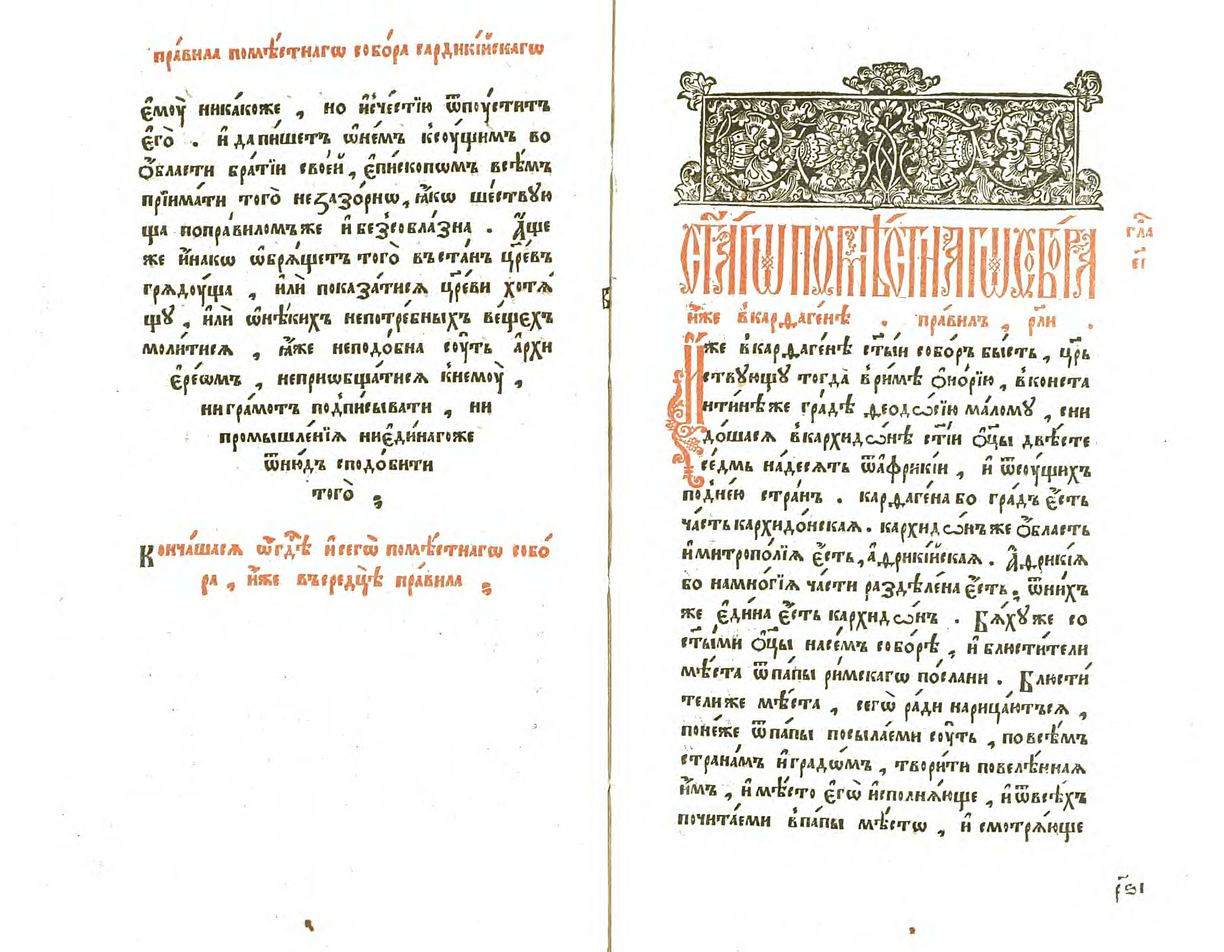 пра́вила помѣ́стнагѡ собо́ра сардикі́йскагѡ
є҆моу̀ никакоже , но и҆счестїю ѿпоу́ститъ
є҆го̀ . и҆ да пишетъ ѡ҆не́мъ ксоу́щимъ во
ѻ҆бласти бра́тїи свое́й , є҆пископѡмъ всѣ́мъ
прїима́ти того̀ незазо́рнѡ, ꙗ҆́кѡ ше́ствꙋю
ща поправиломъже и҆ безсобла́зна . А҆́ще
же и҆накѡ ѡ҆брѧ́щетъ того̀ въстанъ цр҃евъ
грѧдоу́ща , и҆лѝ показа́тисѧ цр҃еви хотѧ́
щꙋ , и҆́ли ѡ҆нѣ́кихъ непотре́бныхъ ве́щехъ
моли́тисѧ , ꙗ҆́же неподо́бна соу́ть а҆рхи
є҆ре́ѡмъ , неприѡбща́тисѧ кнемоу̀ ,
ни гра́мотъ подпи́сывати , ни
промышле́нїѧ ниє҆ди́нагоже
ѿню́дъ сподо́бити
того̀ ;
Конча́шасѧ и҆ сегѡ̀ помѣ́стнагѡ собо́
ра , и҆́же въсредцѣ̀ пра́вила ;
ст҃а́гѡ помѣ́стнагѡ собо́ра
гла
е҃і
и҆́же вкарѳаге́нѣ . пра́вилъ , рл҃и .
И҆́же вкарѳаге́нѣ ст҃ы́и собо́ръ бы́сть , цр҃ь
ствꙋющꙋ тогда̀ ври́мѣ ѻ҆но́рїю , вконста
нти́нѣже гра́дѣ ѳеодо́сїю ма́ломꙋ , сни
до́шасѧ вкархидо́нѣ ст҃і́и ѻ҆ц҃ы двѣ́сте
се́дмь на́десѧть ѿа҆фрикі́и , и҆ ѿсоу́щихъ
под не́ю стра́нъ . карѳаге́на бо гра́дъ є҆́сть
ча́сть кархидо́нскаѧ . кархидо́нъже ѻ҆́бласть
и҆ митропо́лїѧ є҆́сть, а҆ѳрикі́йскаѧ . А҆ѳрикі́ѧ
бо на мно́гїѧ ча́сти раздѣле́на є҆́сть , ѿ ни́хъ
же є҆ди́на є҆́сть кархидо́нъ . Бѧ́хꙋ же со
ст҃ы́ми ѻ҆ц҃ы на се́мъ собо́рѣ , и҆ блюсти́тели
мѣ́ста ѿпа́пы ри́мскагѡ по́слани . Блюсти́
тели же мѣ́ста , сегѡ̀ ра́ди нарица́ютъсѧ ,
поне́же ѿпа́пы посыла́еми соу́ть , по всѣ́мъ
страна́мъ и҆ градѡ́мъ , твори́ти повелѣ́ннаѧ
и҆́мъ , и҆ мѣ́сто є҆гѡ̀ и҆сполнѧ́юще , и҆ ѿвсѣ́хъ
почита́еми впа́пы мѣ́стѡ , и҆ смотрѧ́юще
рѕ҃і